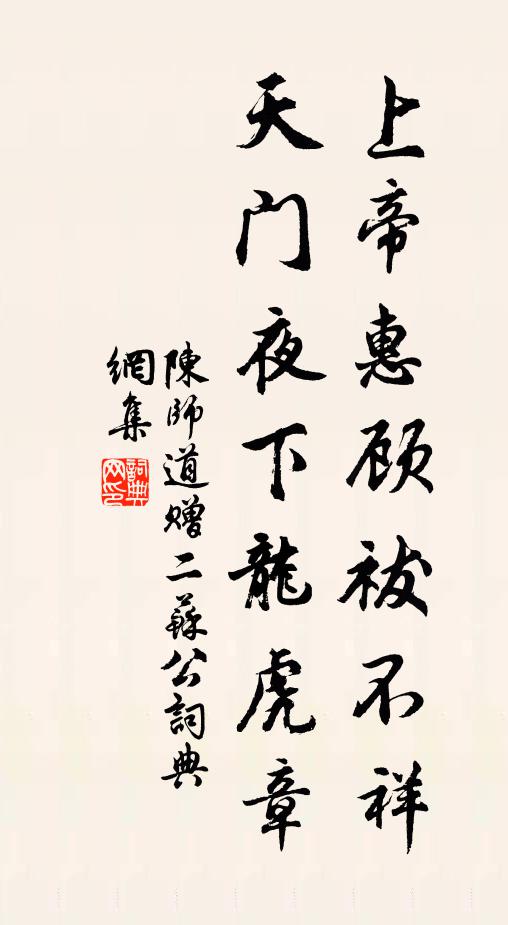 上帝惠顾祓不祥
天门夜下龍虎章
陳師道贈二蘇公詞典
網集
詞典
网印